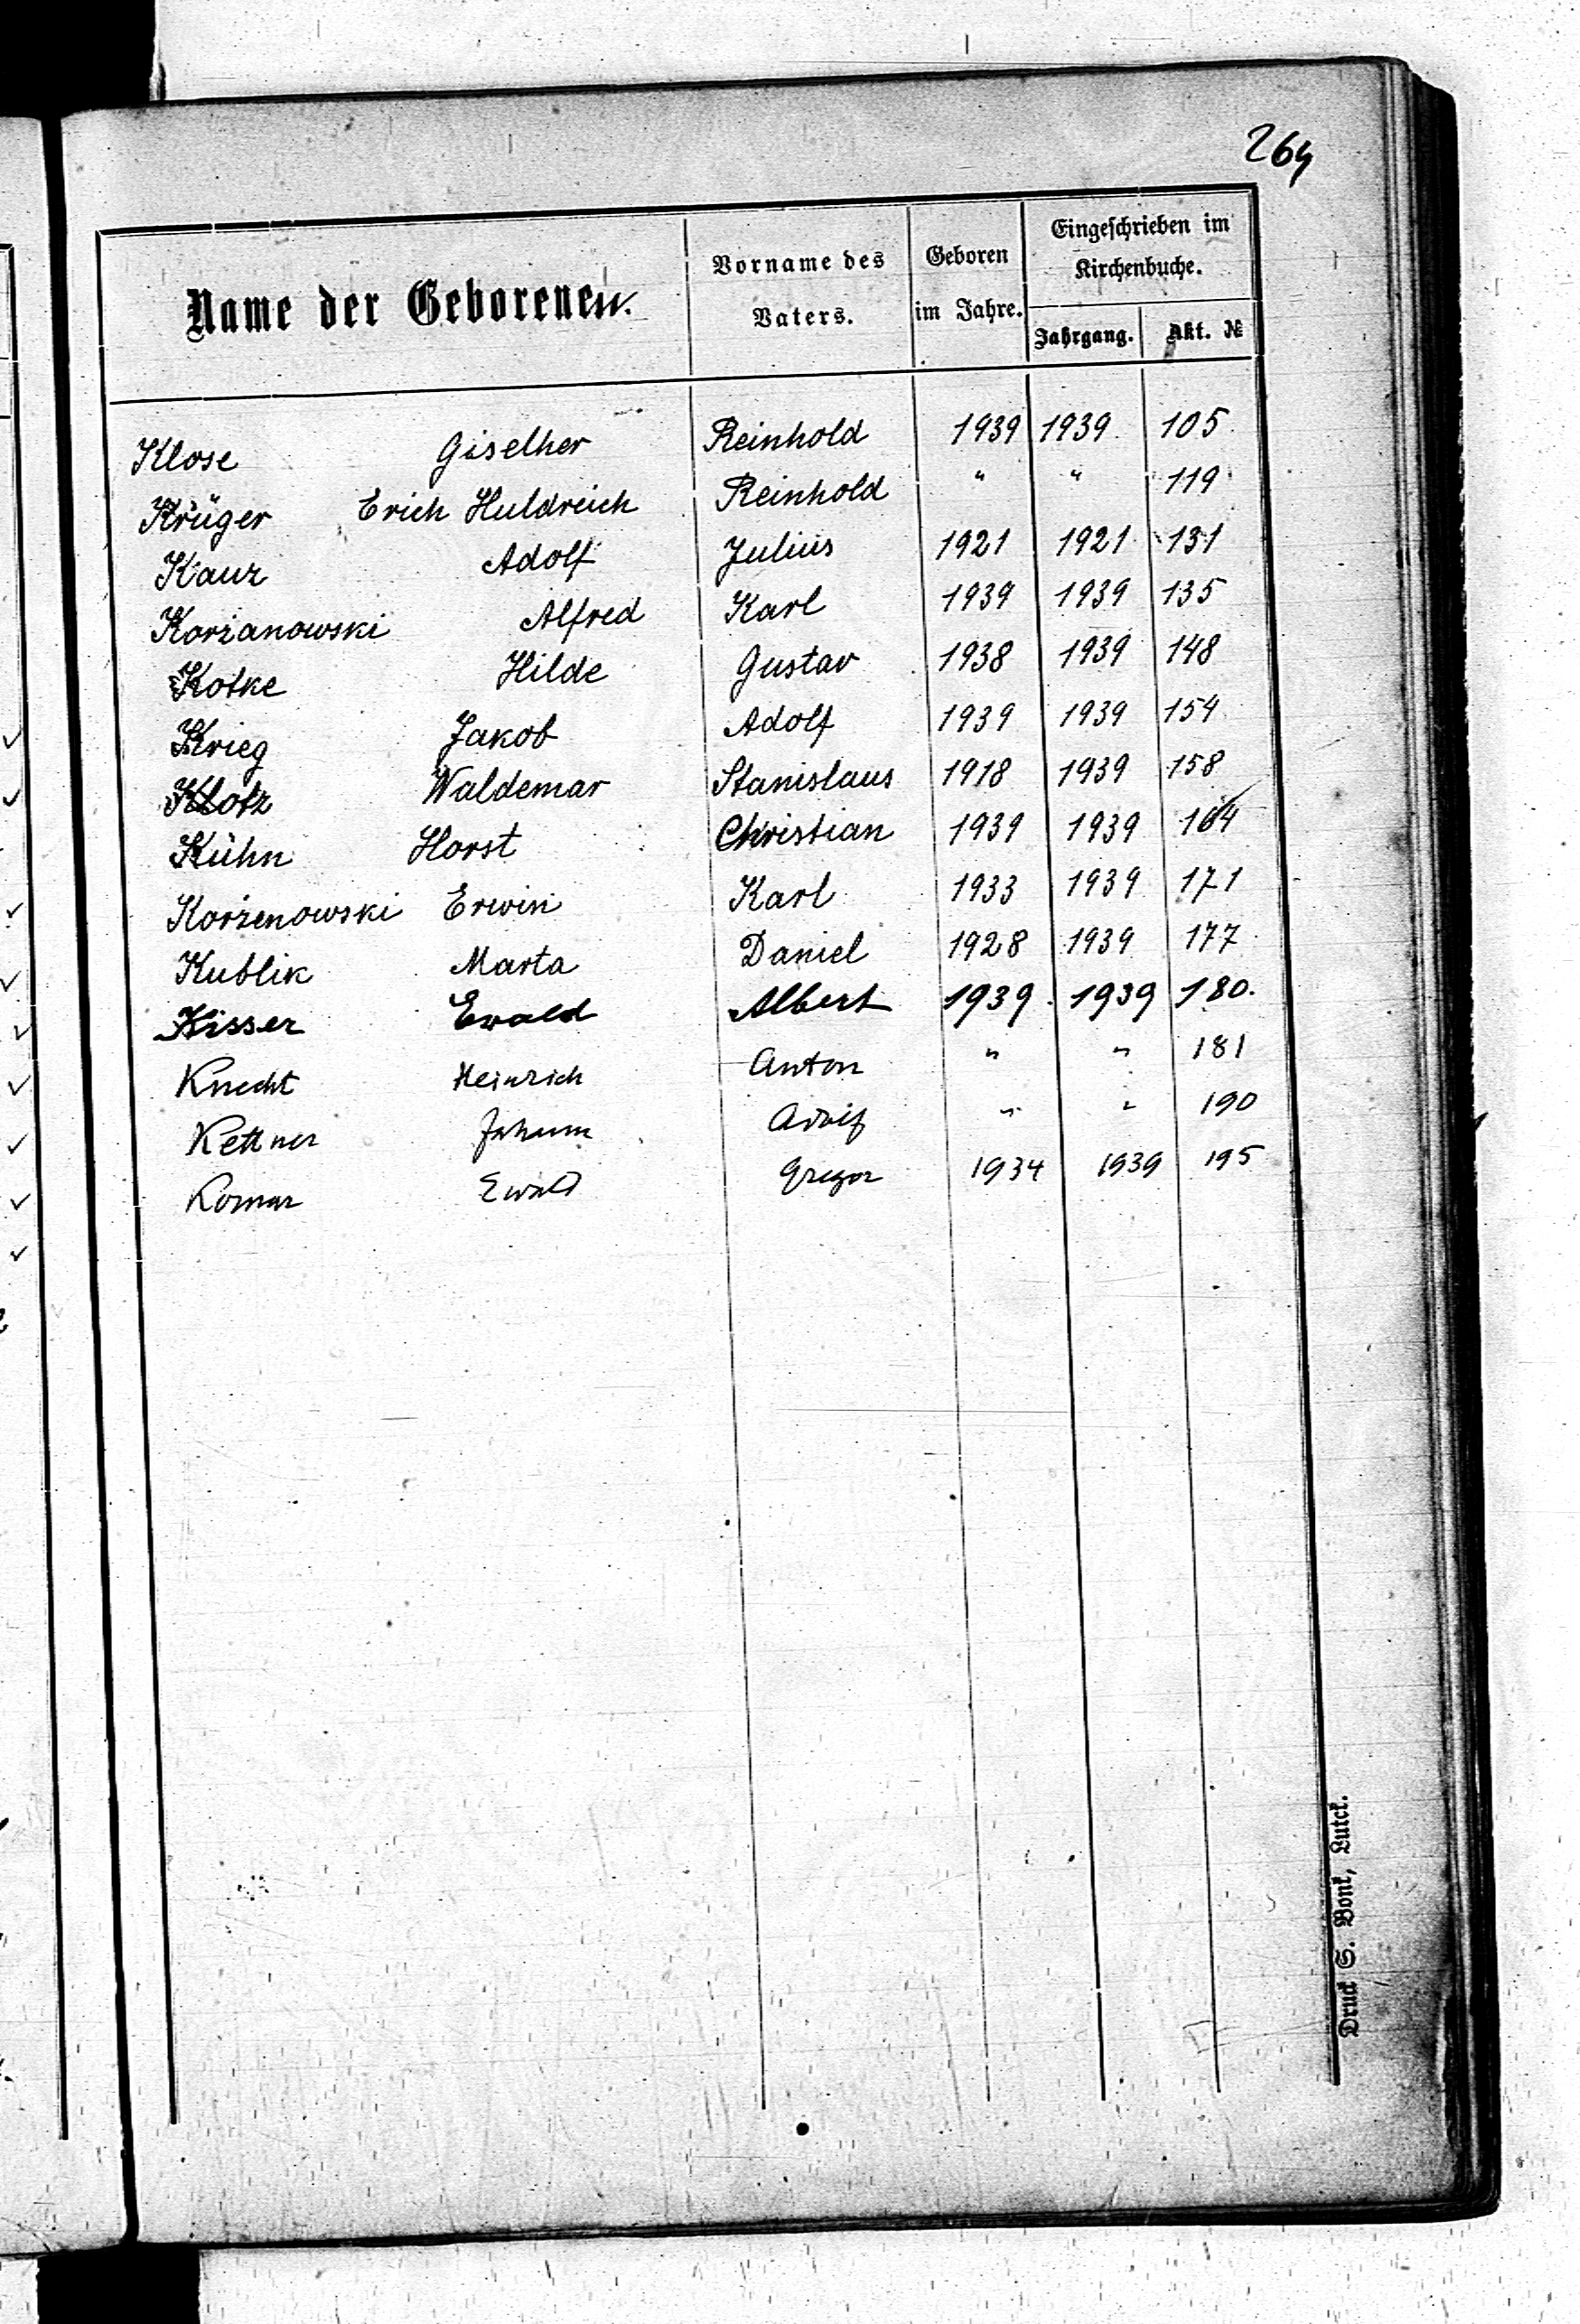 264
Name der Geborenen.
Vorname des Vaters.
Geboren im Jahre.
Eingeschrieben im Kirchenbuche.
Jahrgang. Akt. №
Klose Giselher Reinhold 1939 1939 105
Krüger Erich Huldreich Reinhold " " 119
Kauz Adolf Julius 1921 1921 131
Koržanowski Alfred Karl 1939 1939 135
Kotke Hilde Gustav 1938 1939 148
Krieg Jakob Adolf 1939 1939 154
Klotz Waldemar Stanislaus 1918 1939 158
Kühn Horst Christian 1939 1939 164
Korženowski Erwin Karl 1933 1939 171
Kublik Marta Daniel 1928 1939 177
Kisser Ewald Albert 1939. 1939 180.
Knecht Heinrich Anton " " 181
Kettner Adolf " " 190
Komar Ewald Gregor 1934 1939 195
Druck S. Bonk, Lutck.